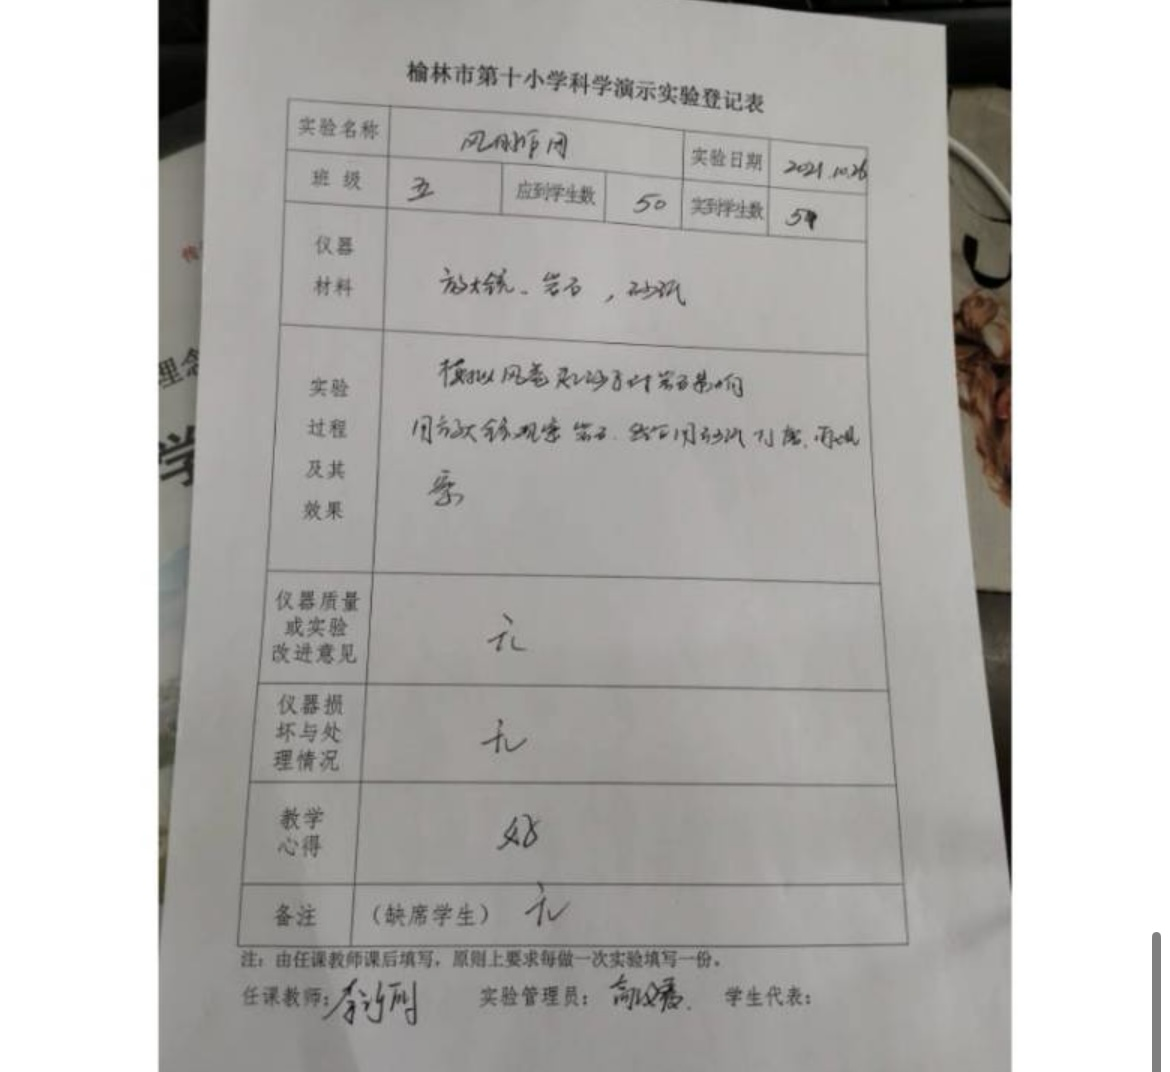 榆林市第十小学科学演示实验登记表
实验名称 风的作用 实验日期 2021.10.26
班 级 五 应到学生数 50 实到学生数
仪器
材料
放大镜、岩石，砂纸
实验
过程
及其
效果
模拟风卷 对岩石影响
用放大镜观察岩石.然后用砂纸打磨,再观
察
仪器质量
或实验
改进意见
无
仪器损
坏与处
理情况
无
教学
心得
好
备注 （缺席学生） 无
注：由任课教师课后填写，原则上要求每做一次实验填写一份。
任课教师： 实验管理员： 学生代表：
理念
学